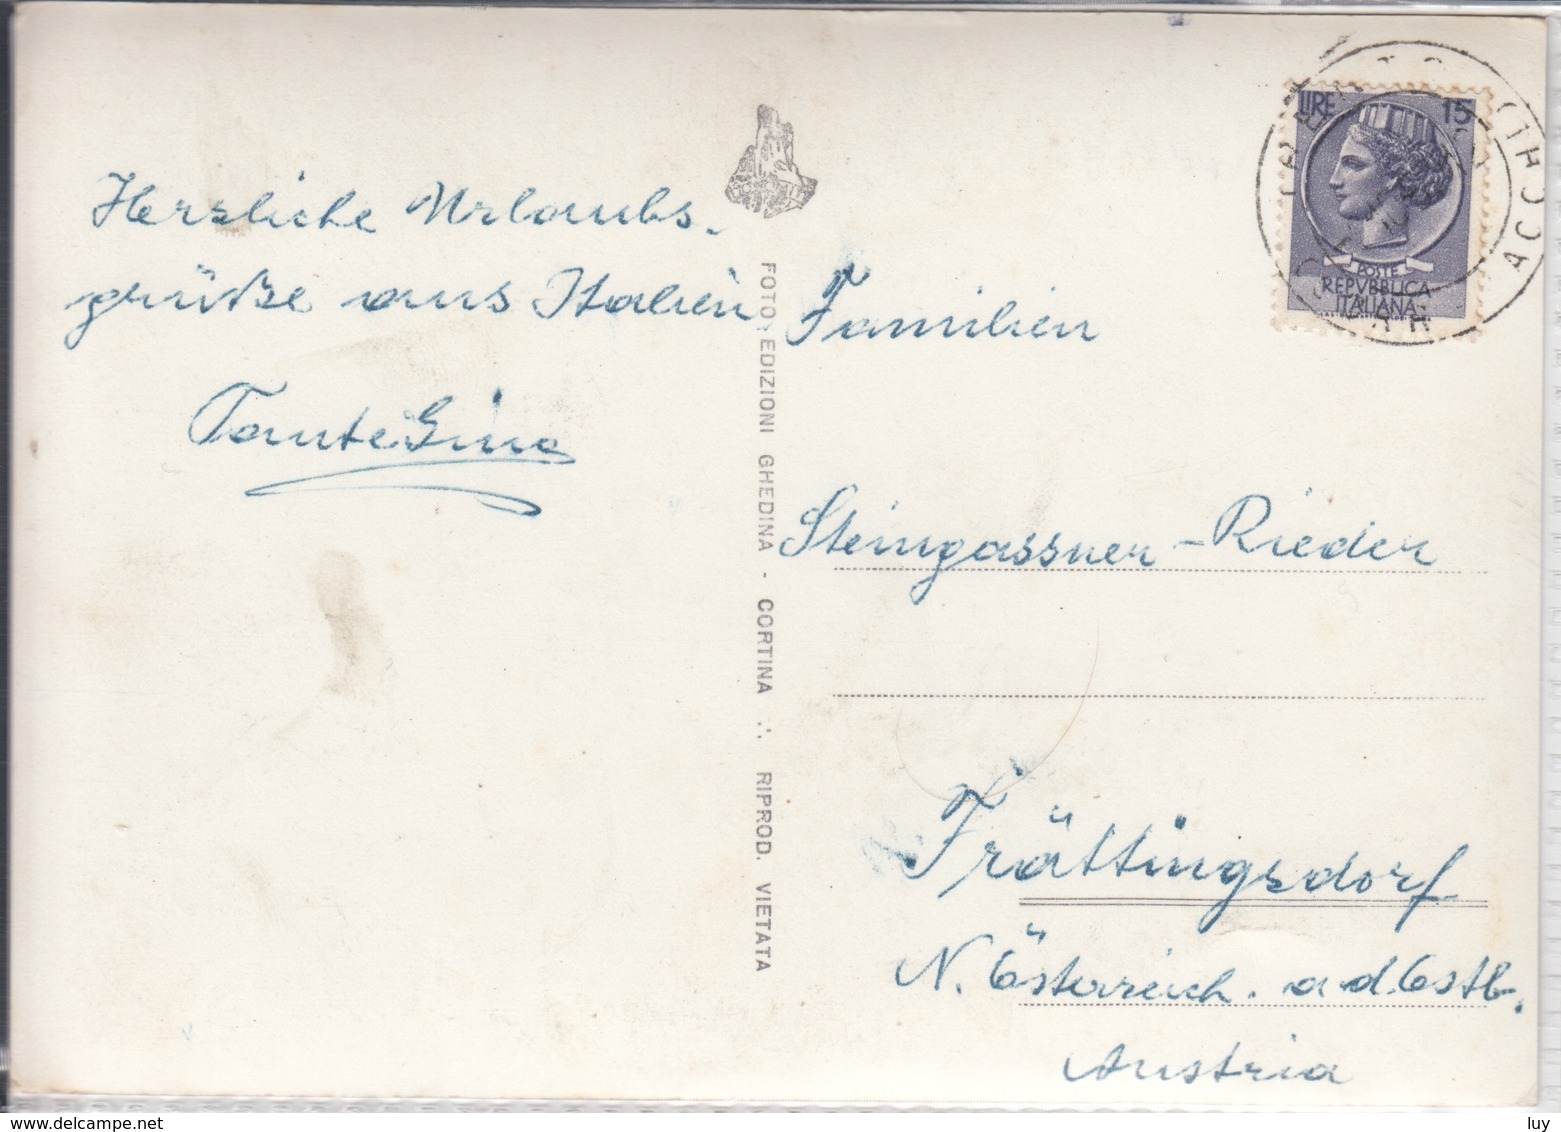 Herzliche Urlaubs-
grüße aus Italien
Tante Gina
FOTO EDIZIONI GHEDINA - CORTINA ∴ RIPROD. VIETATA
LIRE 15
POSTE
REPVBBLICA
ITALIANA
Familien
Steingassner-Rieder
Frättingsdorf
N. Österreich. a d. Ostb.
Austria
www.delcampe.net
luy